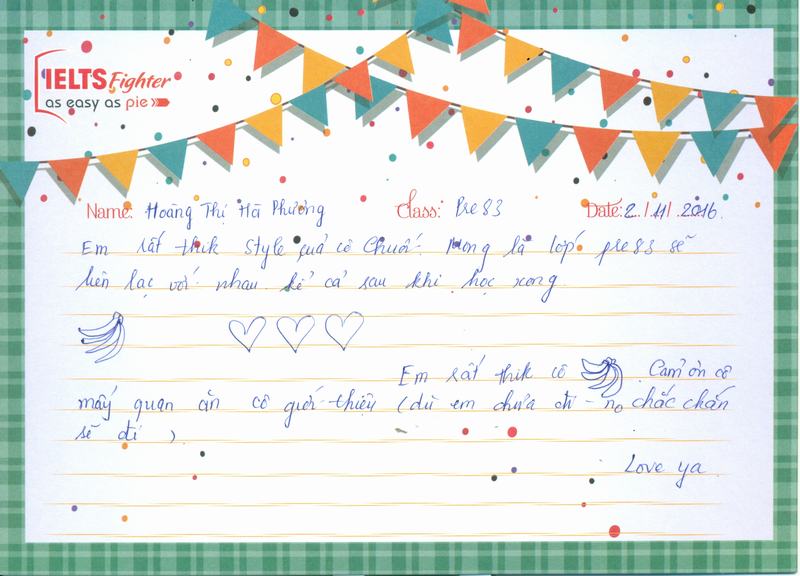 IELTS Fighter
as easy as pie
Name: Hoàng Thị Hà Phương Class: Pre 83 Date: 2./.11/.2016.
Em rất thik style quả cô Chuối. Mong là lớp pre 83 sẽ
liên lạc với nhau kể cả sau khi học xong
Em rất thik cô Cảm ơn cô
mấy quan ăn cô giới thiệu (dù em chưa đi - nhưng chắc chắn
sẽ đi ).
Love ya